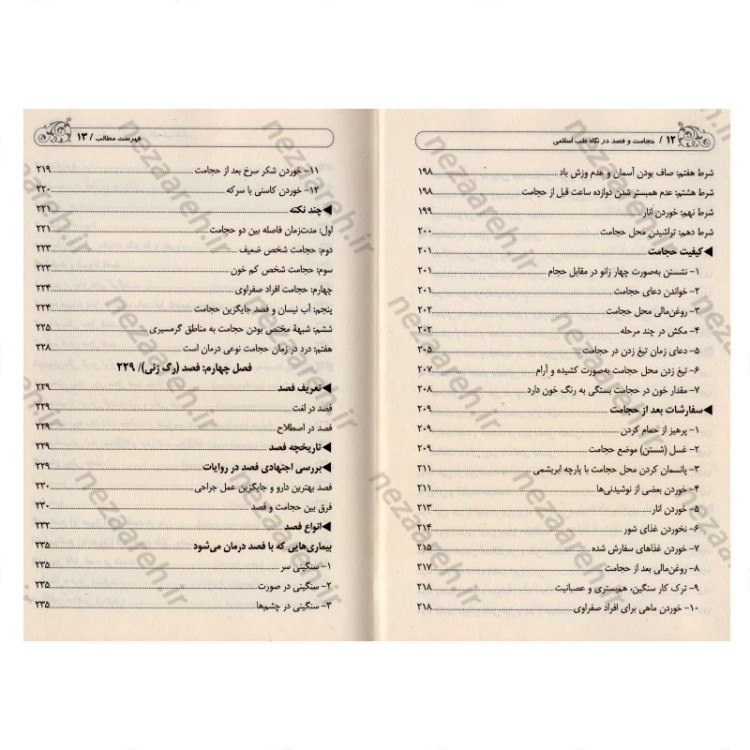 ۱۲ / حجامت و فصد در نگاه طب اسلامی
شرط هفتم: صاف بودن آسمان و عدم وزش باد ۱۹۸
شرط هشتم: عدم همبستر شدن دوازده ساعت قبل از حجامت ۱۹۸
شرط نهم: خوردن انار ۱۹۹
شرط دهم: تراشیدن محل حجامت ۲۰۰
◄کیفیت حجامت ۲۰۱
۱- نشستن به‌صورت چهار زانو در مقابل حجام ۲۰۱
۲- خواندن دعای حجامت ۲۰۱
۳- روغن‌مالی محل حجامت ۲۰۲
۴- مکش در چند مرحله ۲۰۳
۵- دعای زمان تیغ زدن در حجامت ۲۰۵
۶- تیغ زدن محل حجامت به‌صورت کشیده و آرام ۲۰۷
۷- مقدار خون در حجامت بستگی به رنگ خون دارد ۲۰۸
◄سفارشات بعد از حجامت ۲۰۹
۱- پرهیز از حمام کردن ۲۰۹
۲- غسل (شستن) موضع حجامت ۲۰۹
۳- پانسمان کردن محل حجامت با پارچه ابریشمی ۲۱۱
۴- خوردن بعضی از نوشیدنی‌ها ۲۱۱
۵- خوردن انار ۲۱۳
۶- نخوردن غذای شور ۲۱۴
۷- خوردن غذاهای سفارش شده ۲۱۵
۸- روغن‌مالی بعد از حجامت ۲۱۷
۹- ترک کار سنگین، هم‌بستری و عصبانیت ۲۱۸
۱۰- خوردن ماهی برای افراد صفراوی ۲۱۸
فهرست مطالب / ۱۳
۱۱- خوردن شکر سرخ بعد از حجامت ۲۱۹
۱۲- خوردن کاسنی با سرکه ۲۲۰
◄چند نکته ۲۲۱
اول: مدت‌زمان فاصله بین دو حجامت ۲۲۱
دوم: حجامت شخص ضعیف ۲۲۳
سوم: حجامت شخص کم خون ۲۲۳
چهارم: حجامت افراد صفراوی ۲۲۴
پنجم: آب نیسان و فصد جایگزین حجامت ۲۲۴
ششم: شبههٔ مختص بودن حجامت به مناطق گرمسیری ۲۲۵
هفتم: درد در زمان حجامت نوعی درمان است ۲۲۸
فصل چهارم: فصد (رگ زنی)/ ۲۲۹
◄تعریف فصد ۲۲۹
فصد در لغت ۲۲۹
فصد در اصطلاح ۲۲۹
◄تاریخچه فصد ۲۲۹
◄بررسی اجتهادی فصد در روایات ۲۲۹
فصد بهترین دارو و جایگزین عمل جراحی ۲۳۰
فرق بین حجامت و فصد ۲۳۰
◄انواع فصد ۲۳۲
بیماری‌هایی که با فصد درمان می‌شود ۲۳۵
۱- سنگینی سر ۲۳۵
۲- سنگینی در صورت ۲۳۵
۳- سنگینی در چشم‌ها ۲۳۵
nezaareh.ir